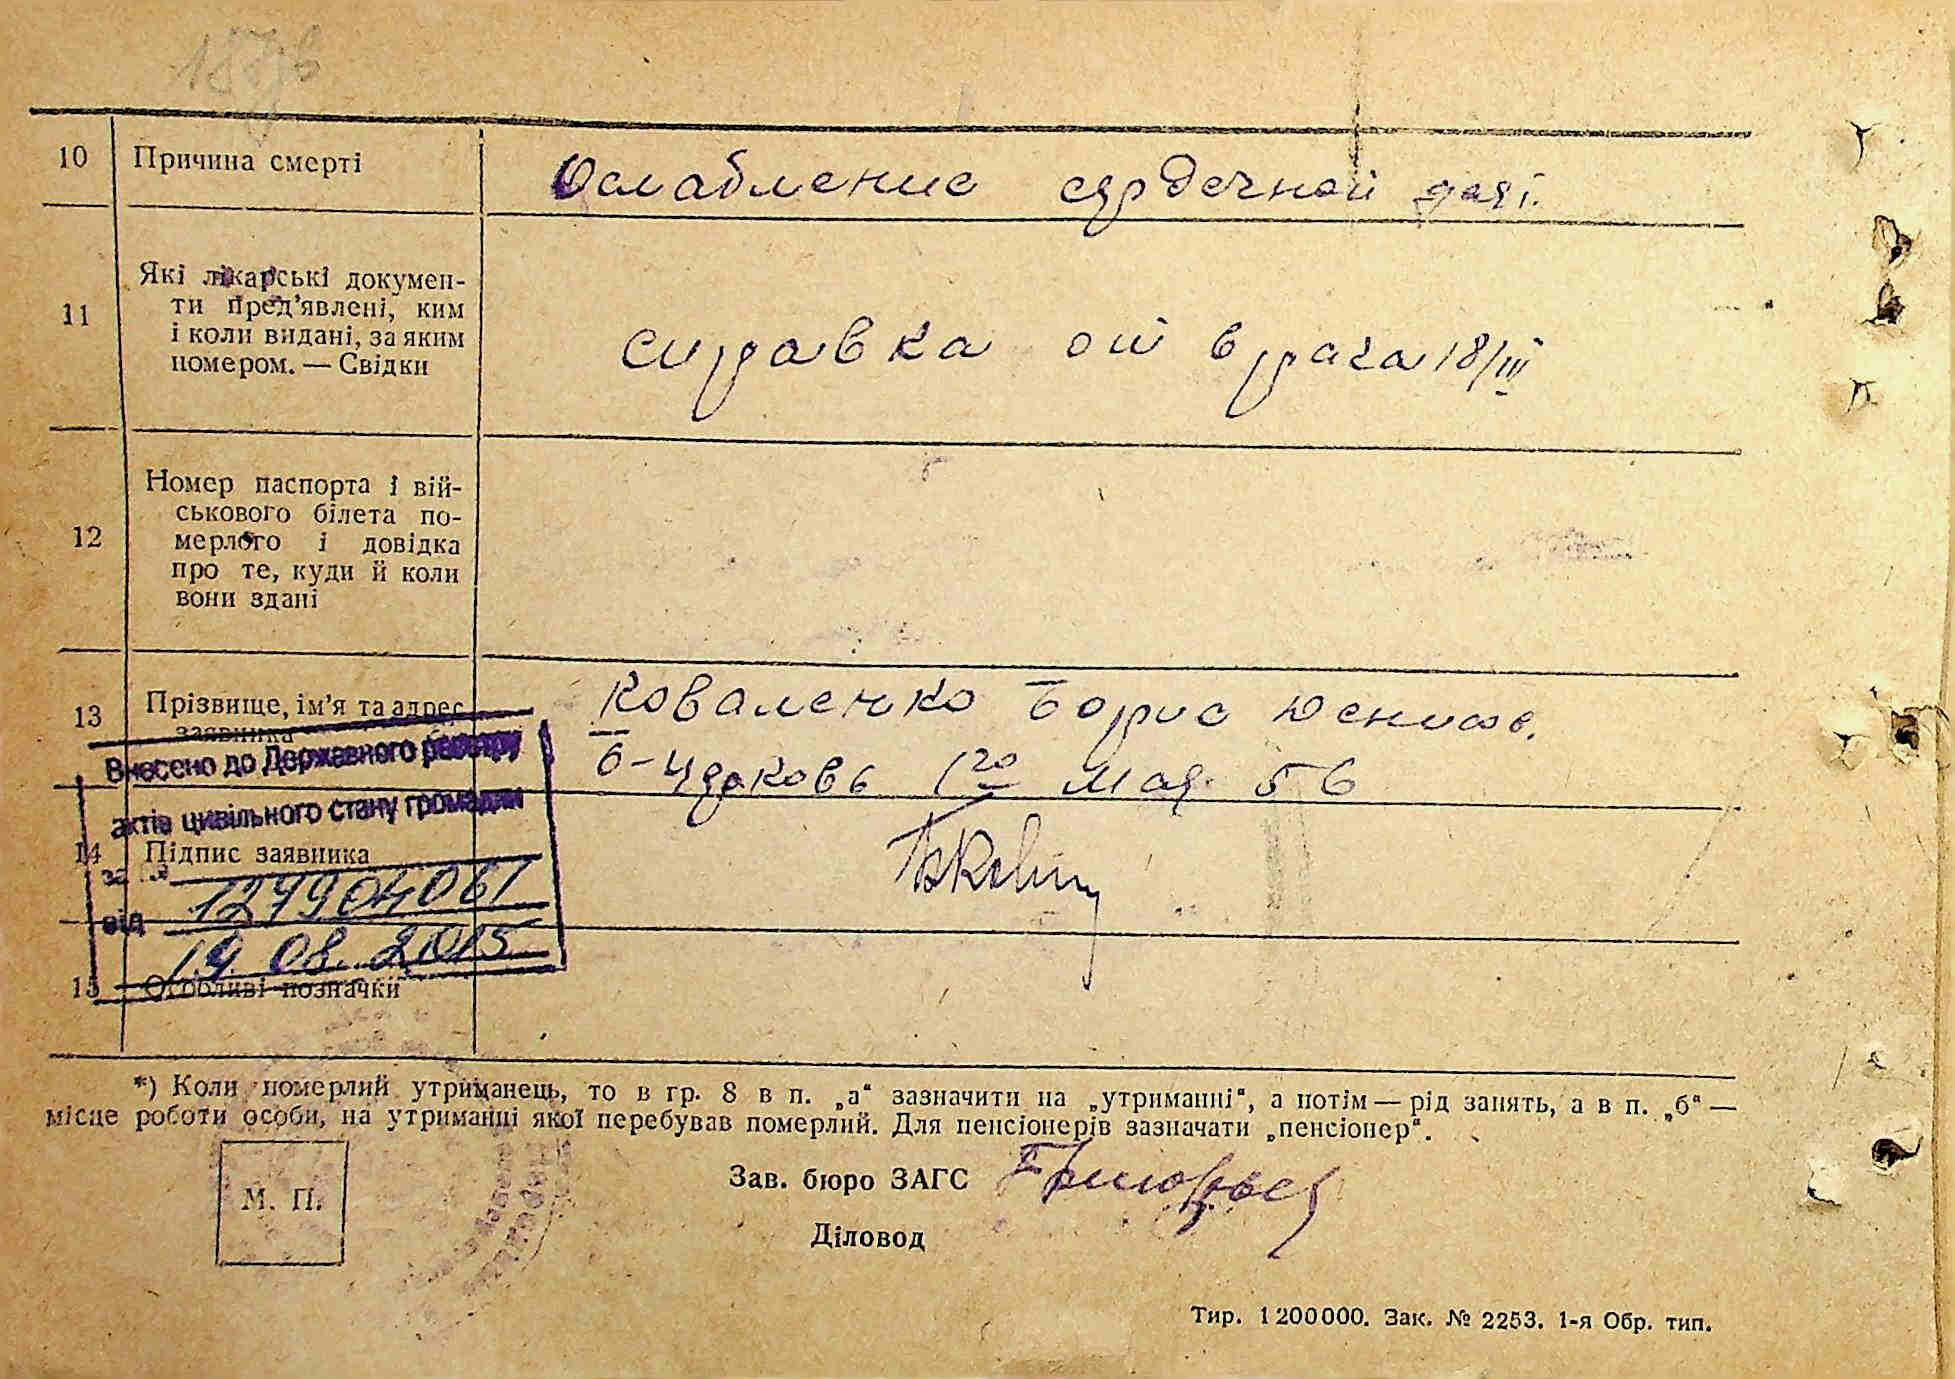 10 Причина смерті
Ослабление сердечной деят.
11 Які лікарські докумен-
ти пред’явлені, ким
і коли видані, за яким
номером. — Свідки
справка от врача 18/III
12 Номер паспорта і вій-
ськового білета по-
мерлого і довідка
про те, куди й коли
вони здані
13 Прізвище, ім’я та адрес
заявника
Коваленко Борис
мая 56
Внесено до Державного реєстру
актів цивільного стану громадян
14 Підпис заявника
за № 127904061
від 19.08.2015
15 Особливі позначки
*) Коли померлий утриманець, то в гр. 8 в п. „а“ зазначити на „утриманні“, а потім — рід занять, а в п. „б“ —
місце роботи особи, на утриманні якої перебував померлий. Для пенсіонерів зазначати „пенсіонер“.
М. П.
Зав. бюро ЗАГС
Діловод
Тир. 1 200 000. Зак. № 2253. 1-я Обр. тип.